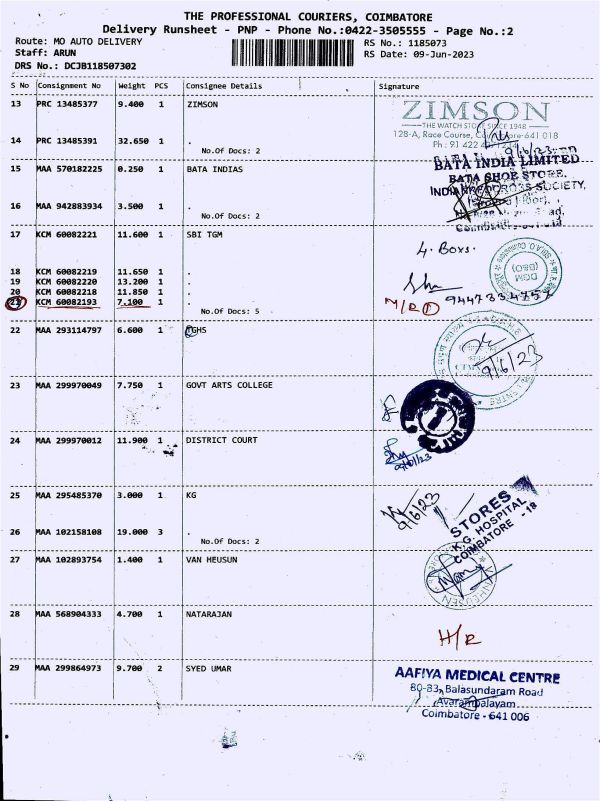 THE PROFESSIONAL COURIERS, COIMBATORE
Delivery Runsheet - PNP - Phone No.:0422-3505555 - Page No.:2
Route: MO AUTO DELIVERY
RS No.: 1185073
Staff: ARUN
RS Date: 09-Jun-2023
DRS No.: DCJB118507302
S No Consignment No Weight PCS Consignee Details Signature
13 PRC 13485377 9.400 1 ZIMSON
ZIMSON
THE WATCH STORE SINCE 1948
128-A, Race Course, Coimbatore-641 018
14 PRC 13485391 32.650 1 .
Ph : 91 422 42
No.Of Docs: 2
9/6/23
15 MAA 570182225 0.250 1 BATA INDIAS
BATA INDIA LIMITED
BATA SHOE STORE,
INDIAN RED CROSS SOCIETY,
16 MAA 942883934 3.500 1 .
No.Of Docs: 2
17 KCM 60082221 11.600 1 SBI TGM
4. Boxs.
DGM
(B&O)
18 KCM 60082219 11.650 1 .
19 KCM 60082220 13.200 1 .
20 KCM 60082218 11.850 1 .
21 KCM 60082193 7.100 1 .
M/R 1
No.Of Docs: 5
22 MAA 293114797 6.600 1 TGHS
9/6/23
23 MAA 299970049 7.750 1 GOVT ARTS COLLEGE
24 MAA 299970012 11.900 1 DISTRICT COURT
9/6/23
25 MAA 295485370 3.000 1 KG
9/6/23
STORES
K.G. HOSPITAL
COIMBATORE - 18
26 MAA 102158108 19.000 3 .
No.Of Docs: 2
27 MAA 102893754 1.400 1 VAN HEUSUN
VANHEUSEN
28 MAA 568904333 4.700 1 NATARAJAN
H/R
29 MAA 299864973 9.700 2 SYED UMAR
AAFIYA MEDICAL CENTRE
80-83, Balasundaram Road
Avarampalayam
Coimbatore - 641 006